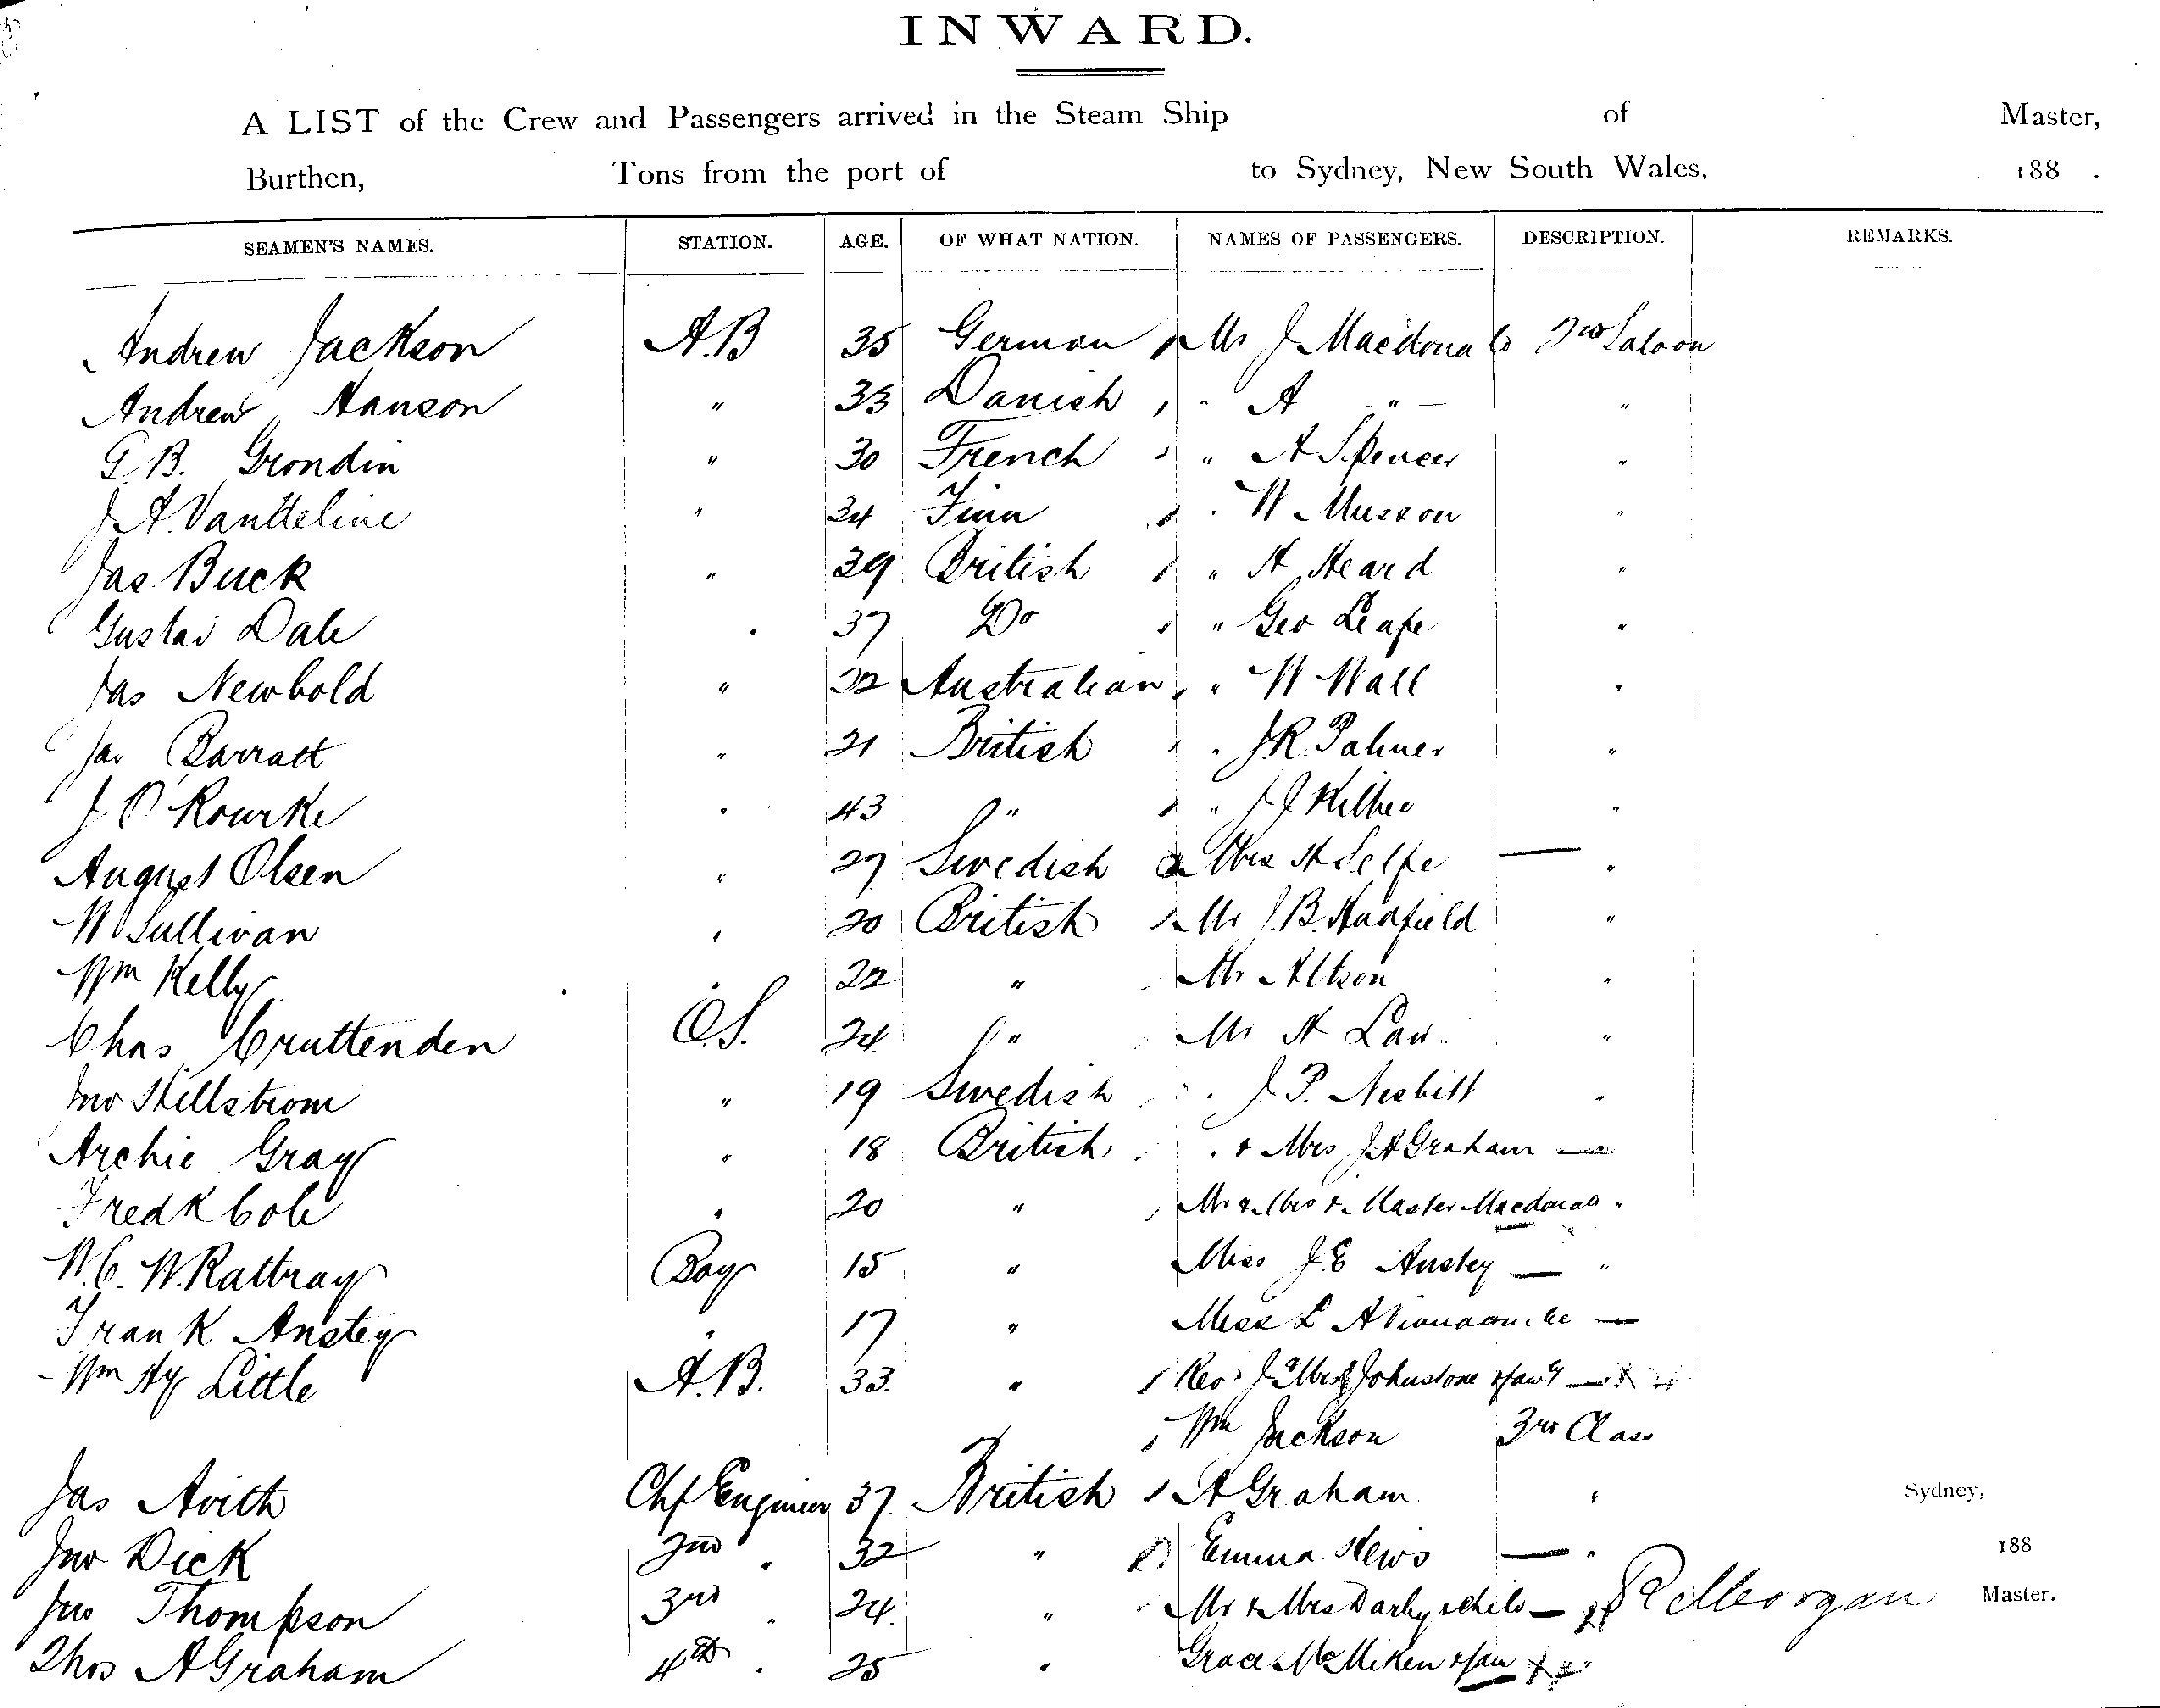 INWARD.
A LIST of the Crew and Passengers arrived in the Steam Ship of Master,
Burthen, Tons from the port of to Sydney, New South Wales, 188 .
SEAMEN'S NAMES. STATION. AGE. OF WHAT NATION. NAMES OF PASSENGERS. DESCRIPTION. REMARKS.
Andrew Jackson A.B 35 German Mr J Macdonald 2nd Saloon
Andrew Hanson " 33 Danish " A " "
G.B. Grondin " 30 French " A Spencer "
J.A. " 34 Finn " W Musson "
Jas Buck " 39 British " H Heard "
Gustav Dale " 37 Do " Geo Leafe "
Jas Newbold " 22 Australian " W Wall "
Jas Barratt " 21 British " J.R. Palmer "
J O'Rourke " 43 " " J J "
August Olsen " 27 Swedish Mrs H Selfe — "
W Sullivan " 20 British Mr J.B. Hadfield "
Wm Kelly " 22 " Mr Altson "
Chas Cruttenden O.S. 24 " Mr H Law "
Jno Hillstrom " 19 Swedish " J.P. Nesbitt "
Archie Gray " 18 British " & Mrs J A Graham —
Fredk Cole " 20 " Mr & Mrs & Master Macdonald "
W.C.W. Rattray Boy 15 " Miss J.E Anstey — "
Frank Anstey " 17 " Miss L A —
Wm Hy Little A.B. 33 " Rev J & Mrs Johnstone & famy —
Wm Jackson 3rd Class
Jas Chf Engineer 37 British A Graham "
Sydney,
Jno Dick 2nd " 32 " Emma Hews — "
188
Jno Thompson 3rd " 24 " Mr & Mrs Darby & child — Master.
Thos A Graham 4th " 25 " Grace McMiken & fam